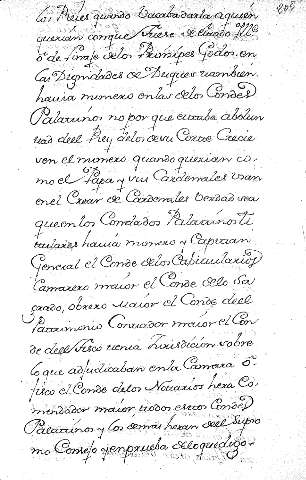 los Reyes quando
querian, aunque fuese
de linaje de los Principes Godos, en
las Dignidades de Duques tambien
havia numero en las de los Condes
Palatinos, no por que estaba
el Rey de los de su Corte Crecie
sen el numero quando querian co
mo el Papa y sus Cardenales usan
en el Crear de Cardenales verdad sea
que en los Condados Palatinos ti
tulares havia numero y Capitan
General el Conde de los
Camarero maior el Conde de lo Sa
grado, obrero Maior el Conde del
Patrimonio Contador maior el Con
de del Fisco tenia Jurisdicion sobre
lo que adjudicaban en la Camara o
fisco el Conde de los Notarios hera Co
mendador maior, todos estos Condes
Palatinos y los demas heran del Supre
mo Consejo y en prueba de lo que digo